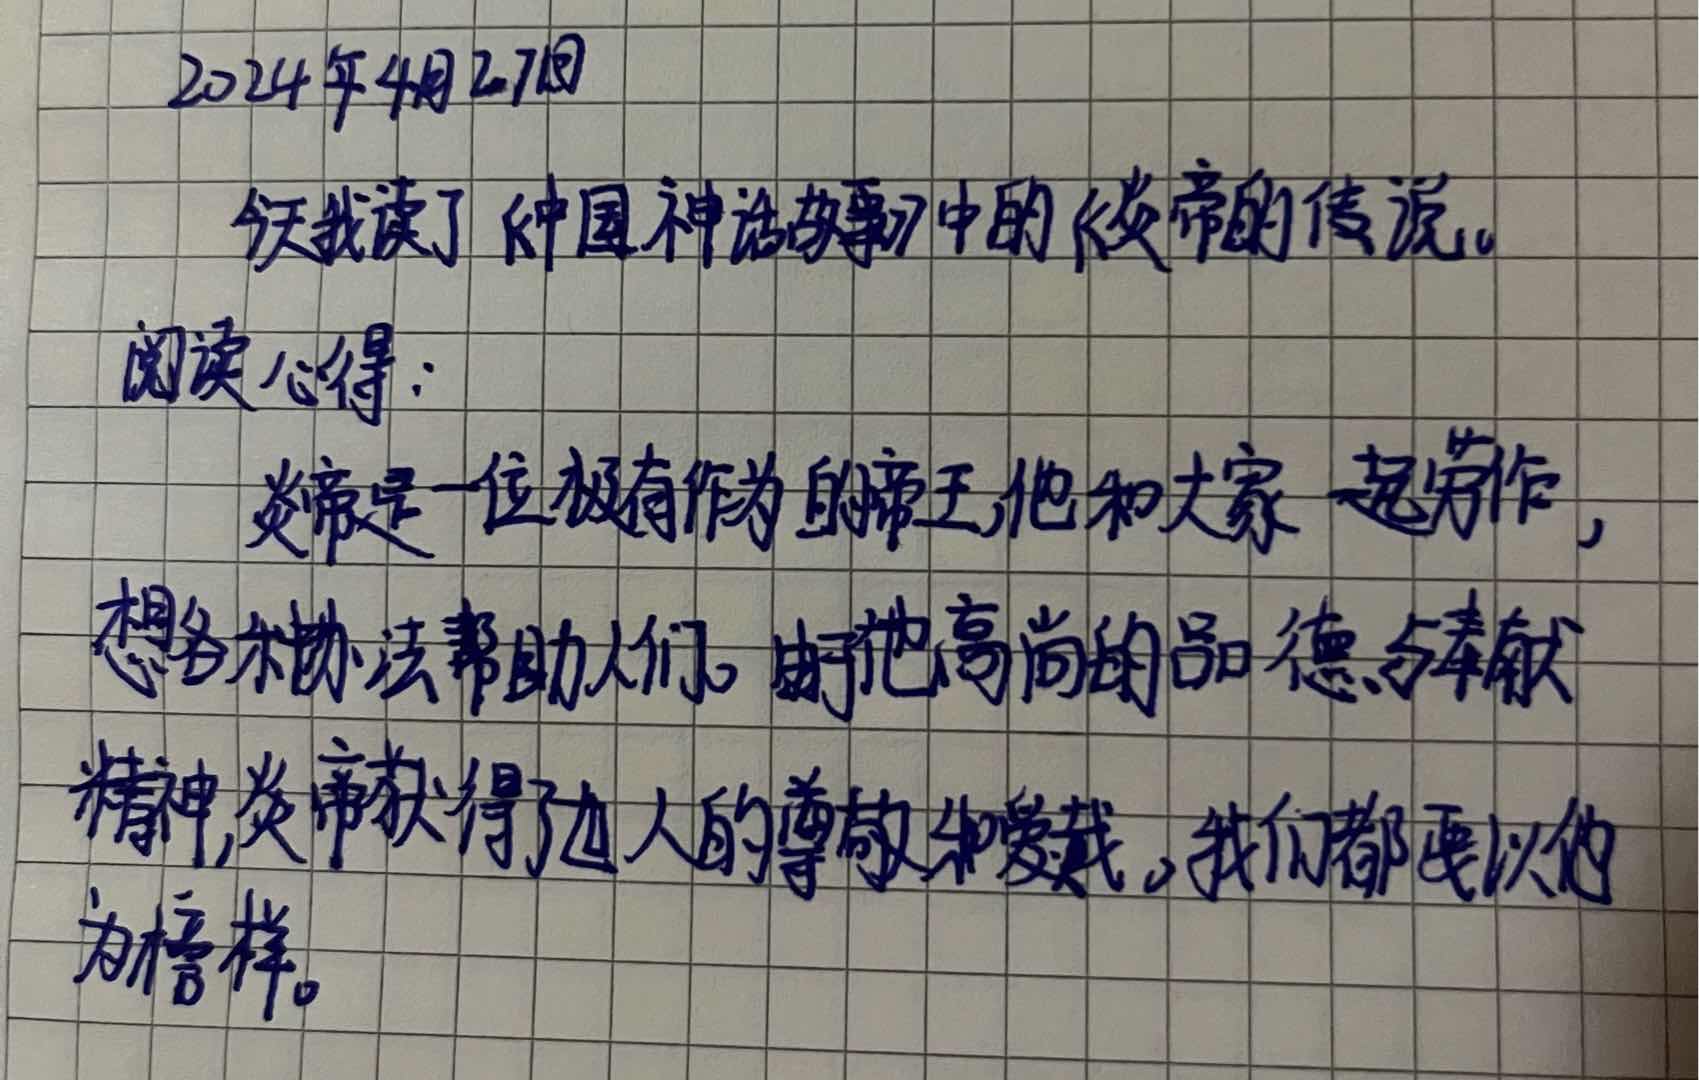 2024年4月27日
今天我读了《中国神话故事》中的《炎帝的传说。
阅读心得：
炎帝是一位极有作为的帝王,他和大家一起劳作，
想各种办法帮助人们。由于他高尚的品德与奉献
精神,炎帝获得了人的尊敬和爱戴。我们都要以他
为榜样。